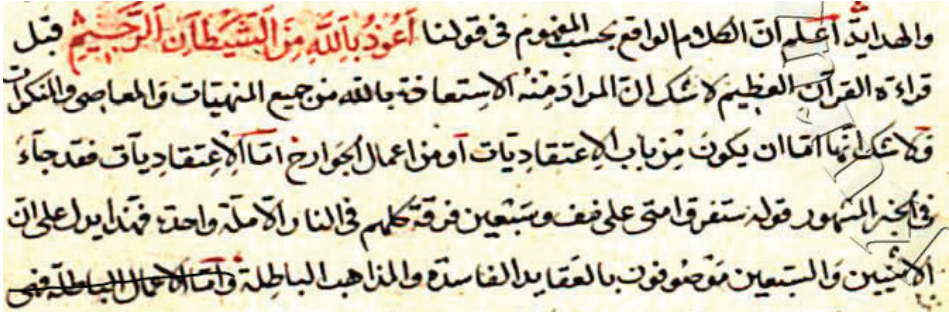 والهداية اعلم ان الكلام الواقع بحسب المفهوم في قولنا أَعُوذُ بِاللَّهِ مِنَ الشَّيْطَانِ الرَّجِيمِ قبل
قراءة القرآن العظيم لا شك ان المراد منه الاستعاذة بالله من جميع المنهيات والمعاصي والمنكرات
ولا شك انها اما ان يكون من باب الاعتقاديات أو من اعمال الجوارح اما الاعتقاديات فقد جاء
في الخبر المشهور قوله ستفرق امتي على نيف وسبعين فرقة كلهم في النار الا ملة واحدة فهذا يدل على ان
الاثنين والسبعين موصوفون بالعقايد الفاسدة والمذاهب الباطلة واما الاعمال الباطلة فهي